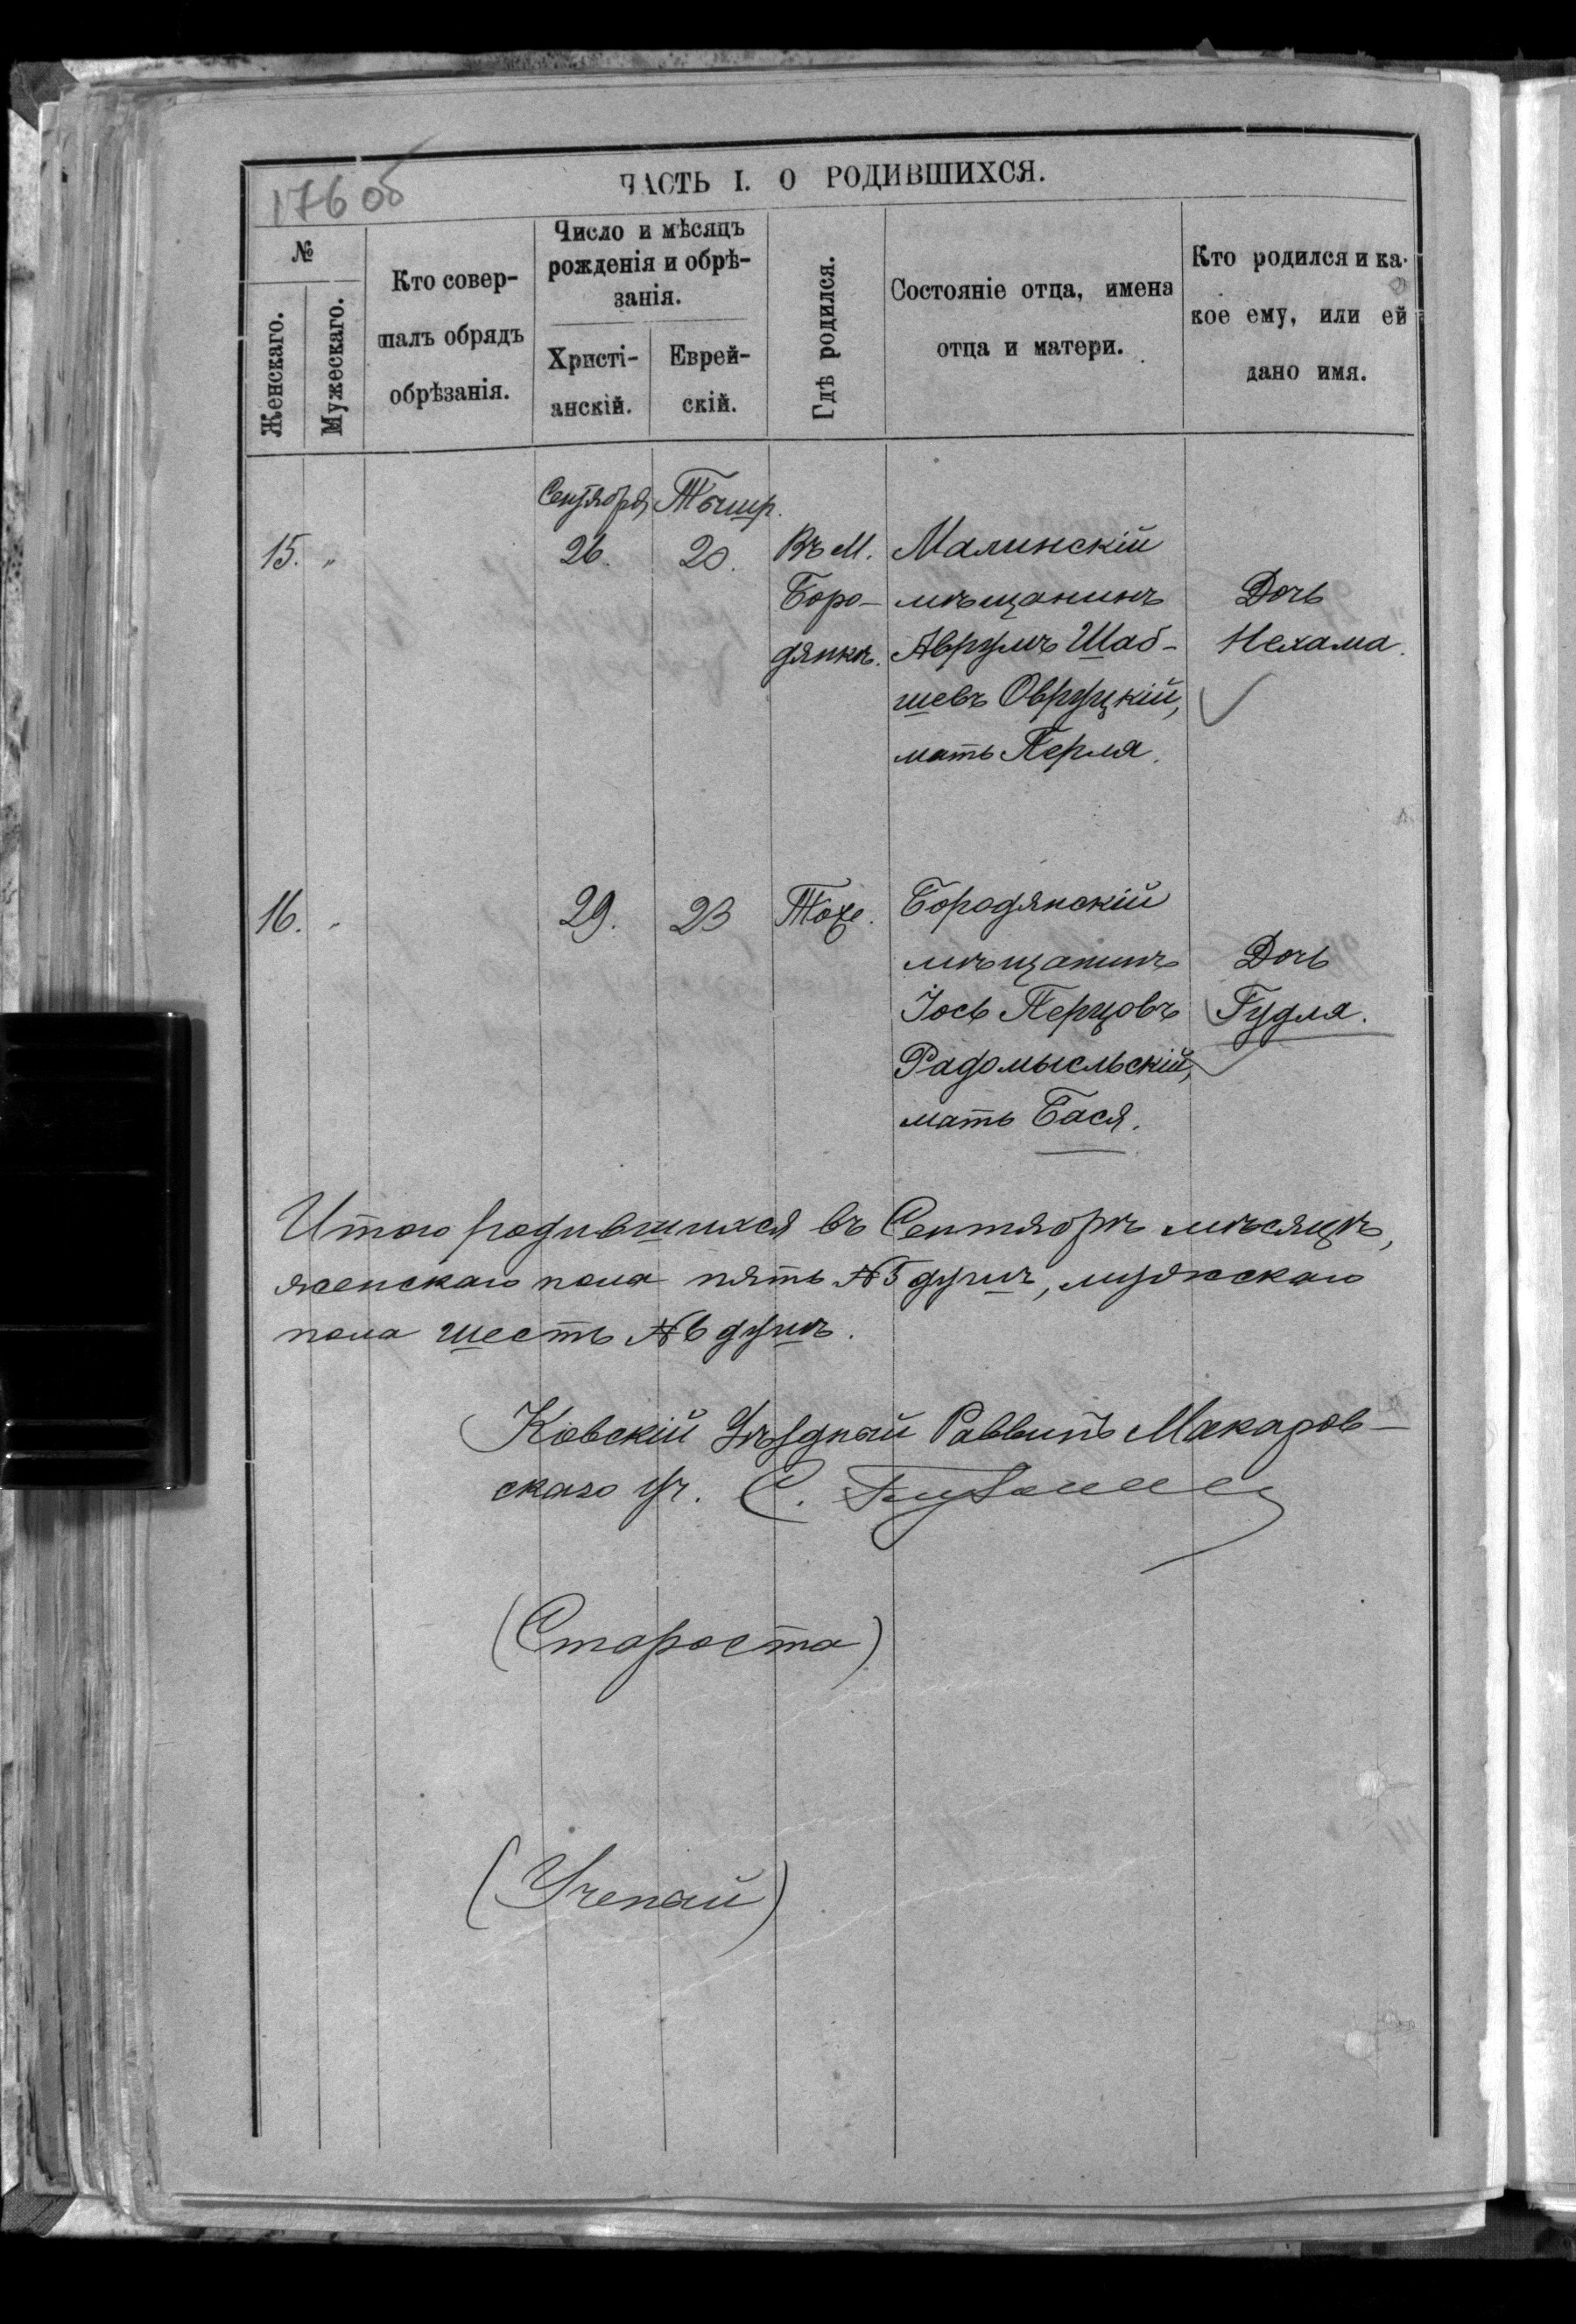 176 об
ЧАСТЬ I. О РОДИВШИХСЯ.
№
Женскаго.
Мужескаго.
Кто совер-
шалъ обрядъ
обрѣзанія.
Число и мѣсяцъ
рожденія и обрѣ-
занія.
Христі-
анскій.
Еврей-
скій.
Гдѣ родился.
Состояніе отца, имена
отца и матери.
Кто родился и ка-
кое ему, или ей
дано имя.
Сентября Тышр.
15. „ 26. 20. Въ М. Малинскій
Боро- мѣщанинъ Дочь
дянкѣ. Аврумъ Шаб- Нехама.
шевъ Овруцкій,
мать Перля.
16. „ 29. 23 Тоже. Бородянскій
мѣщанинъ Дочь
Іось Перцовъ Гудля.
Радомысльскій,
мать Бася.
Итого родившихся въ Сентябрѣ мѣсяцѣ,
женскаго пола пять № 5 душъ, мужскаго
пола шесть № 6 душъ.
Кіевскій Уѣздный Раввинъ Макаров-
скаго уч. С.
(Староста)
(Ученый)